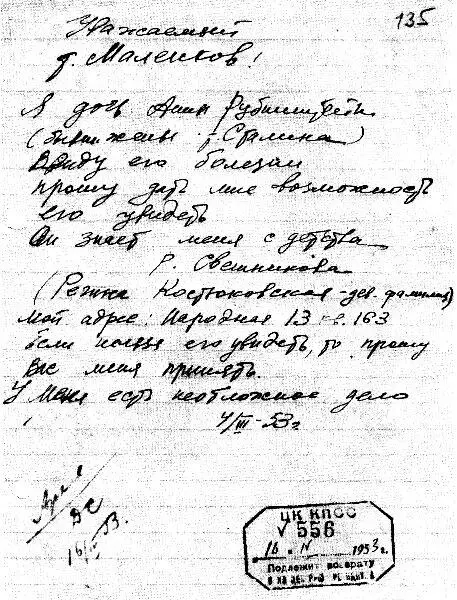 135
Уважаемый
т. Маленков!
Я дочь Анны Рубинштейн
(бывш. жены т. Сталина)
Ввиду его болезни
прошу дать мне возможность
его увидеть
Он знает меня с детства
Р. Свешникова
(Регина Костюковская - дев. фамилия)
Мой адрес: Народная 13 кв. 163
Если нельзя его увидеть, то прошу
Вас меня принять.
У меня есть неотложное дело
4/III-53г
Архив
16/IV 53.
ЦК КПСС
V 556
16 IV 1953г.
Подлежит возврату